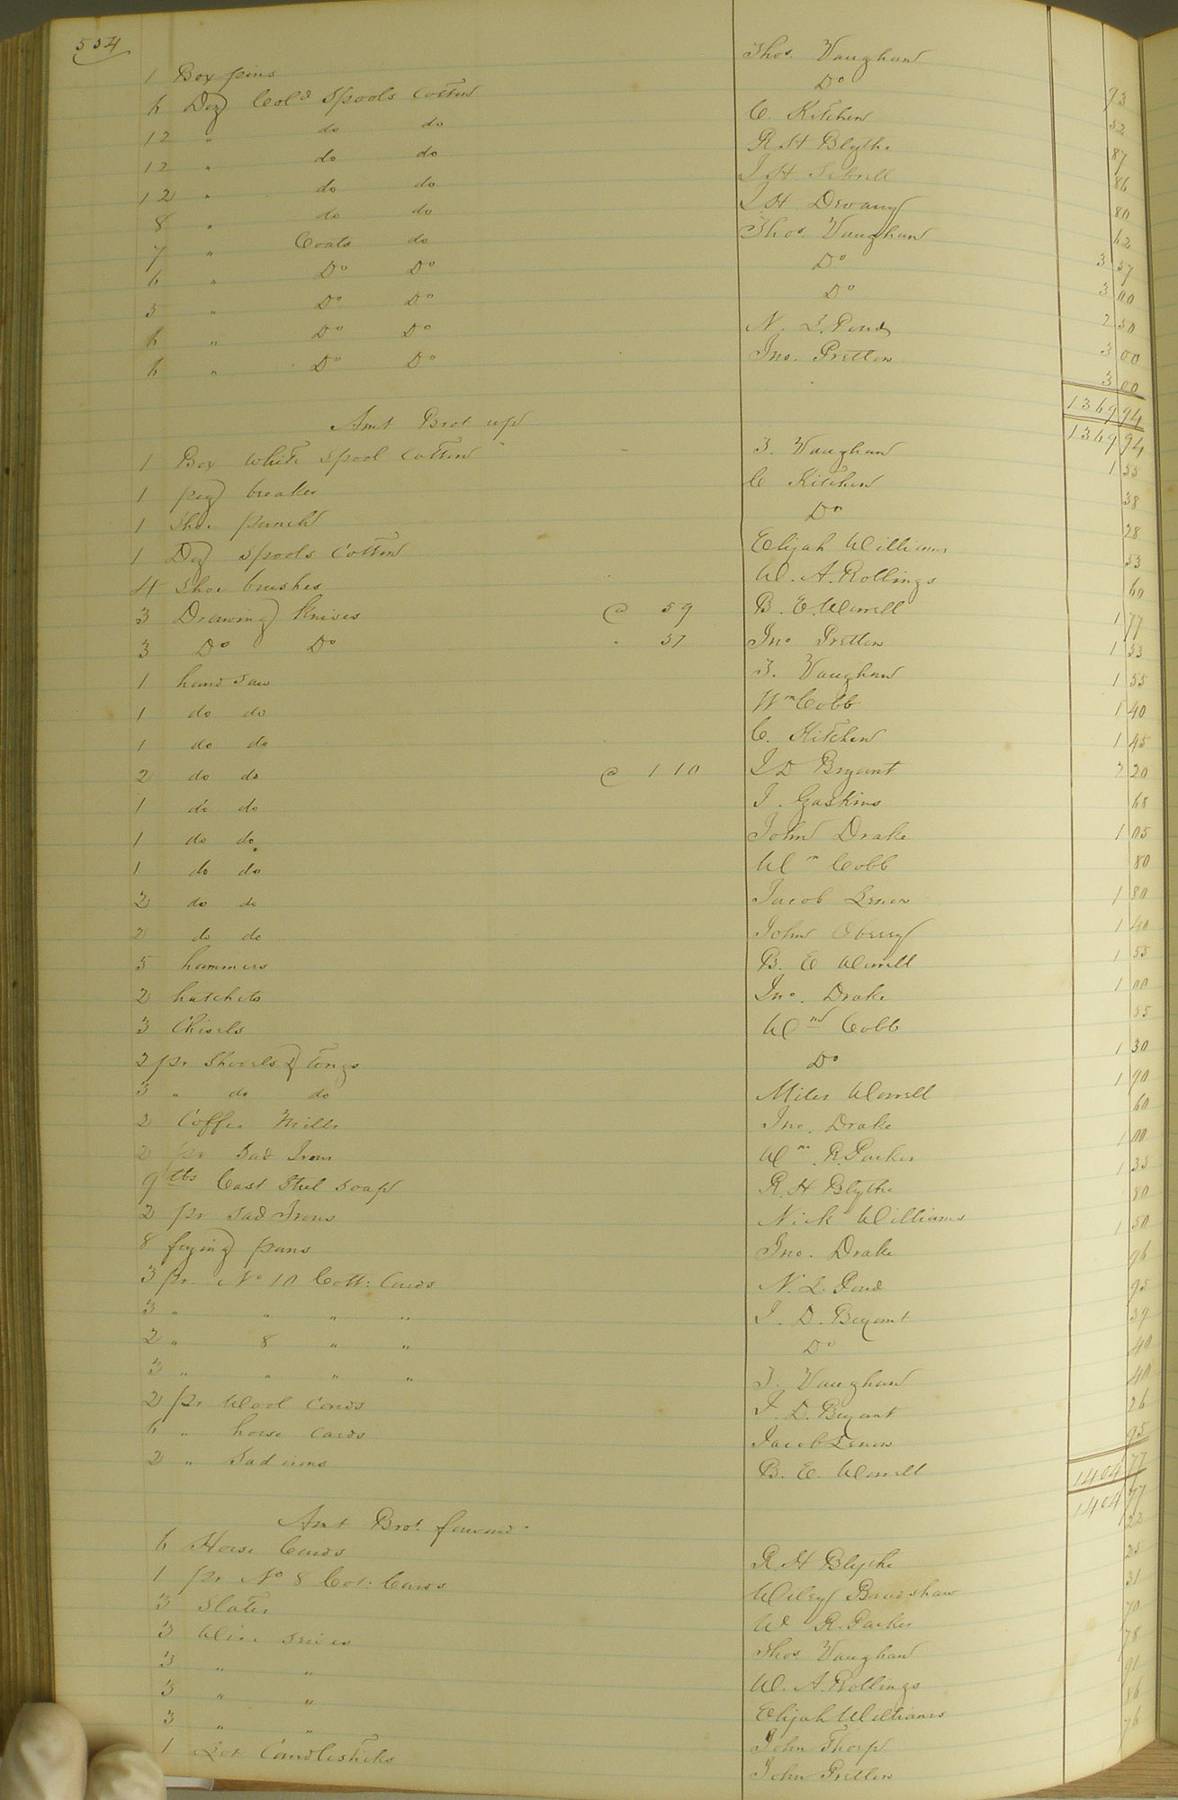 554
1 Box pins Thos. Vaughan 93
6 Doz Cold Spools Cotton Do 52
12 " do do C. Kitchen 87
12 " do do R H Blythe 86
12 " do do J H 80
8 " do do J H 62
7 " Coats do Thos. Vaughan 3 57
6 " Do Do Do 3 00
5 " Do Do Do 2 50
6 " Do Do N. L. Pond 3 00
6 " Do Do Jno. Pretlow 3 00
1369 94
Amt Brot up 1369 94
1 Box White Spool Cotton T. Vaughan 1 55
1 peg breaker C Kitchen 38
1 Shoe punch Do 28
1 Doz Spools Cotton Elijah Williams 53
4 Shoe brushes W. A. Rollings 60
3 Drawing Knives @ 59 B. E. Worrell 1 77
3 Do Do " 51 Jno Pretlow 1 53
1 hand Saw T. Vaughan 1 55
1 do do Wm Cobb 1 40
1 do do C. Kitchen 1 45
2 do do @ 1 10 J D Bryant 2 20
1 do do J. Gaskins 68
1 do do John Drake 1 05
1 do do Wm Cobb 80
2 do do Jacob 1 80
2 do do John Oberry 1 40
5 hammers B. E Worrell 1 55
2 hatchets Jno. Drake 1 00
3 Chisels Wm Cobb 55
2 pr Shovels & Tongs Do 1 30
3 " do do Miles Worrell 1 90
2 Coffee Mills Jno. Drake 60
2 pr Sad Irons Wm R. Parker 1 00
9 lbs Cast Steel Soap R. H Blythe 1 35
2 pr Sad Irons Nick Williams 80
8 frying pans Jno. Drake 1 50
3 pr. No 10 Cott: Cards N. L. Pond 96
3 " " " " J. D. Bryant 95
2 " 8 " " Do 39
3 " " " " T. Vaughan 40
2 pr Wool Cards J. D. Bryant 40
6 " horse Cards Jacob 26
2 " Sad irons B. E. Worrell 95
1404 77
Amt Brot. forward 1404 77
6 Horse Cards R H Blythe 22
1 pr No 8 Cot: Cards Wiley Bradshaw 25
3 Slates W R. Parker 31
3 Wire Seives Thos Vaughan 70
3 " " W. A. Rollings 78
3 " " Elijah Williams 91
3 " " John Thorp 86
1 Lot Candlesticks John Pretlow 76